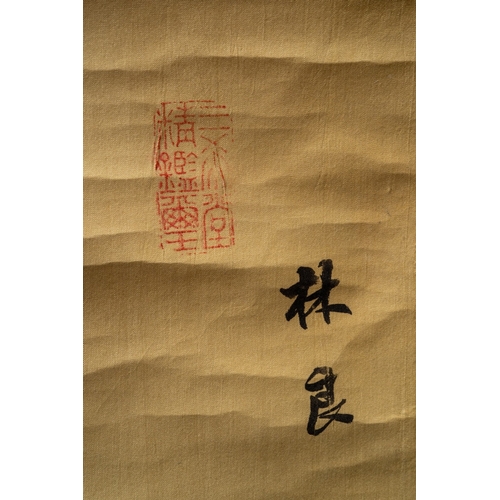 三希堂
精鑑璽
林良